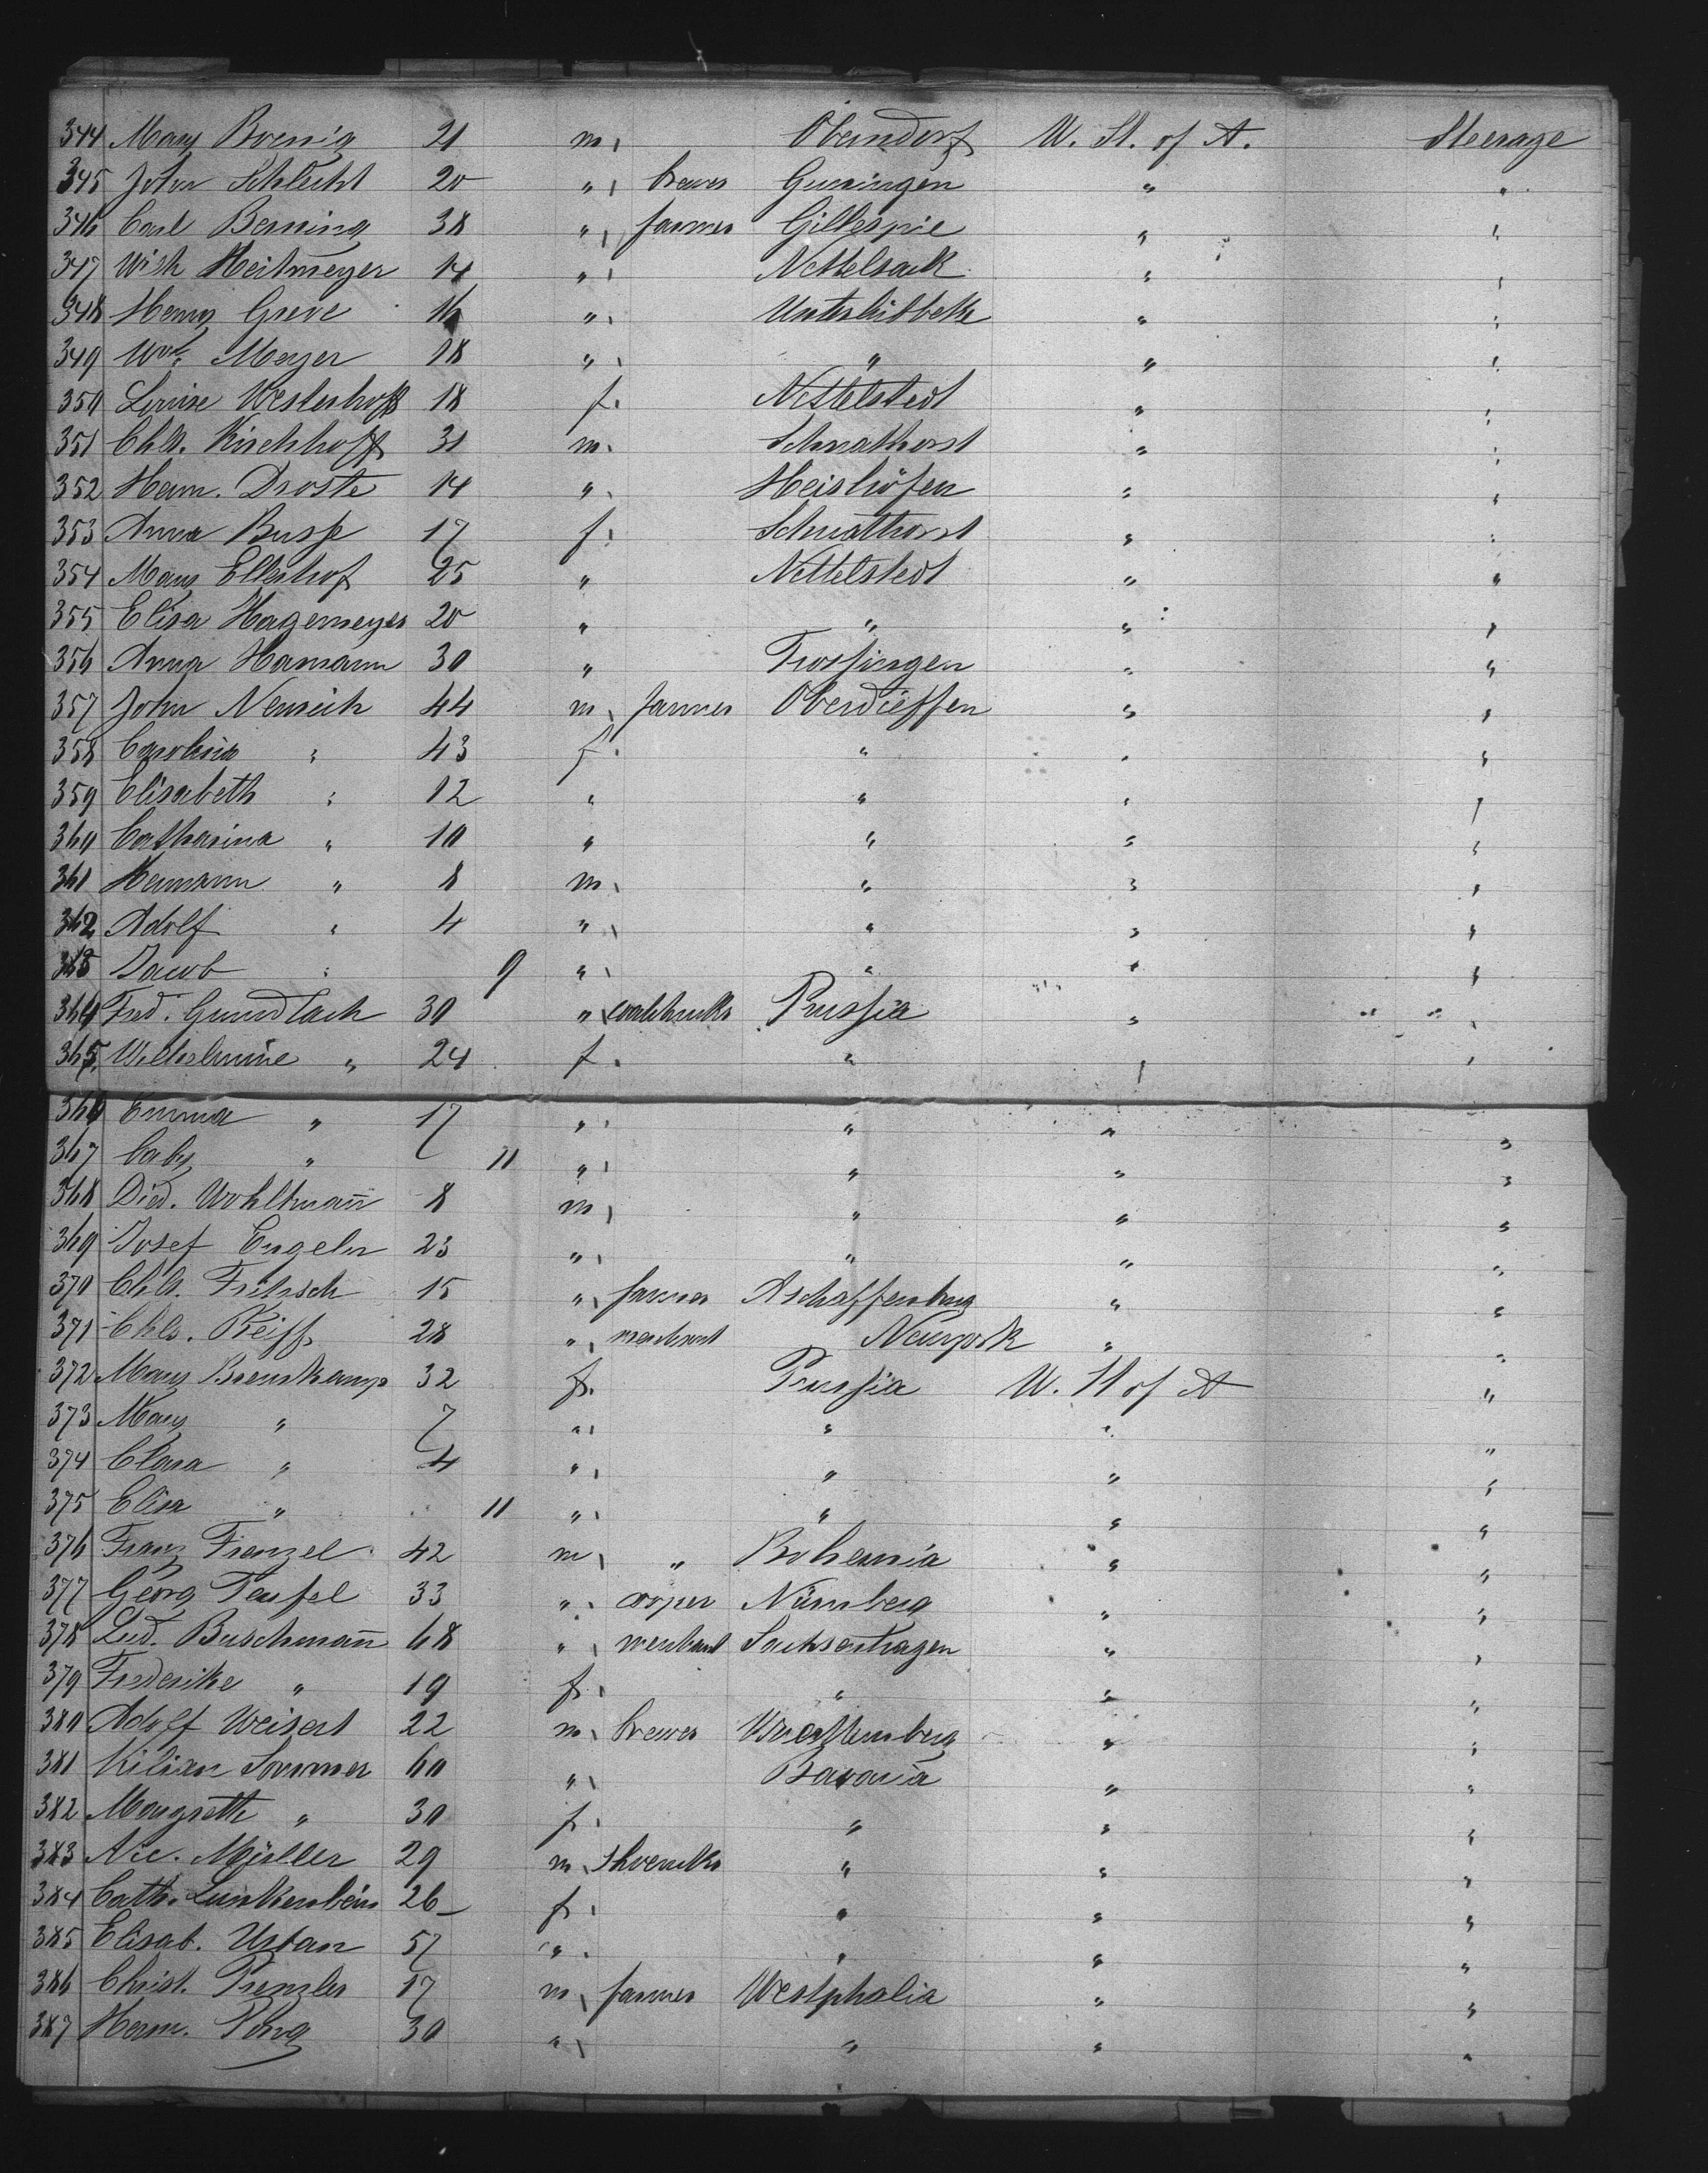 344 Mary Boenig 21 m. Oberndorf U. St. of A. Steerage
345 John Schlecht 20 " brewer Gunningen " "
346 Carl Berning 38 " farmer Gillespie " "
347 Wilh Heitmeyer 14 " Nettelsack " "
348 Henry Greve 16 " Unterlübbecke " "
349 Wm. Meyer 18 " " " "
350 Louise Westerhoff 18 f. Nettelstedt " "
351 Chr. Kirchhoff 31 m. Schnathorst " "
352 Herm. Droste 14 " " "
353 Anna Busse 17 f. Schnathorst " "
354 Mary Ellerhof 25 " Nettelstedt " "
355 Elisa Hagemeyer 20 " " " "
356 Anna Hamann 30 " Trossingen " "
357 John 44 m. farmer " "
358 Carolina " 43 f. " " "
359 Elisabeth " 12 " " " "
360 Catharina " 10 " " " "
361 Hermann " 8 m. " " "
362 Adolf " 4 " " " "
363 Jacob " 9 " " " "
364 Fred. Gundlach 30 " Prussia " "
365 Wilhelmine " 24 f. " " "
366 Emma " 17 " " " "
367 baby " 11 " " " "
368 Died. Wohltmann̄ 8 m. " " "
369 Josef Engeln 23 " " " "
370 Chr. Fritzsch 15 " farmer Aschaffenburg " "
371 Chls. Reiff 28 " merchant Newyork " "
372 Mary 32 f. Prussia U. St of A "
373 Mary " 7 " " " "
374 Clara " 4 " " " "
375 Elisa " 11 " " " "
376 Franz Frenzel 42 m " Bohemia " "
377 Georg Teufel 33 " cooper Nürnberg " "
378 Lud. Buschman̄ 68 " merchant Sachsenhagen " "
379 Frederike " 19 f. " " "
380 Adolf Weisert 22 m. brewer Wuerttemberg " "
381 Kilian Sommer 60 " Bavaria " "
382 Margreth " 30 f. " " "
383 Nic. Müller 29 m. " " "
384 Cath. Lunkenbein 26 f. " " "
385 Elisab. Urban 57 " " " "
386 Christ. Prenzler 17 m. farmer Westphalia " "
387 Herm. 30 " " " "